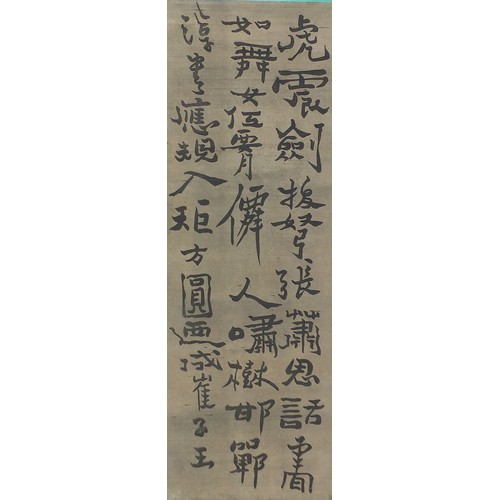 虎震劍拔弩張蕭思話書
如舞女低腰僊人嘯樹邯鄲
淳書應規入矩方圓迺成崔子玉